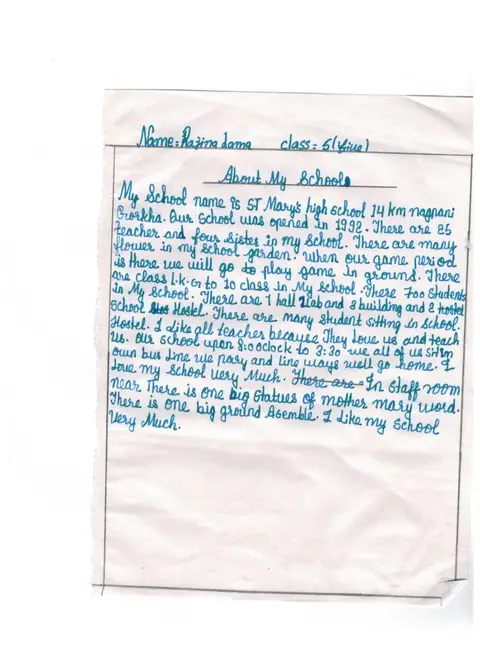 Name: Razina lama class = 5 (five)
About My School
My School name is ST Mary's high school 14 km nagpani
Gorkha. Our School was opened in 1992. There are 25
teacher and four Sister in my School. There are many
flower in my school garden. When our game period
is there we will go to play game in ground. There
are class L.K.G to 10 class in My School. There 700 students
in My School. There are 1 hall 2lab and 3 building and 2 hostel
School Hostel. There are many student sitting in school.
Hostel. I Like all teacher because They love us and teach
us. Our School upon 8:00 oclock to 3:30 we all of us sit in
own bus line we pary and line ways well go home. I
love my School Very. Much. There are In Staff room
near There is one big Statues of mother mary word.
There is one big ground Asemble. I Like my School
Very Much.